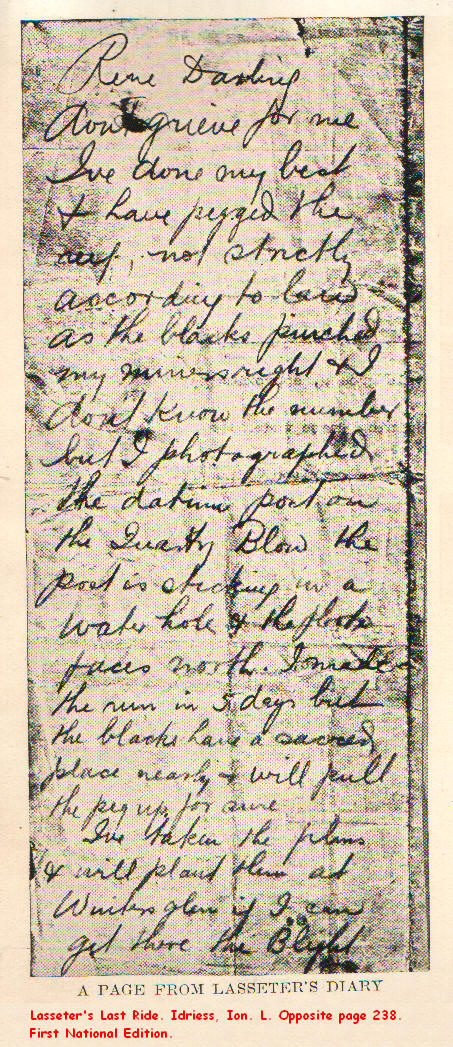 Rene Darling
don't grieve for me
Ive done my best
& have pegged the
reef, not strictly
according to law
as the blacks pinched
my miners right & I
dont know the number
but I photographed
the datum post on
the Quartz Blow the
post is sticking in a
water hole & the photo
faces north. I made
the run in 5 days but
the blacks have a sacred
place nearby & will pull
the peg up for sure
Ive taken the films
& will plant them at
Winters glen if I can
get there the Blight
A PAGE FROM LASSETER'S DIARY
Lasseter's Last Ride. Idriess, Ion. L. Opposite page 238.
First National Edition.